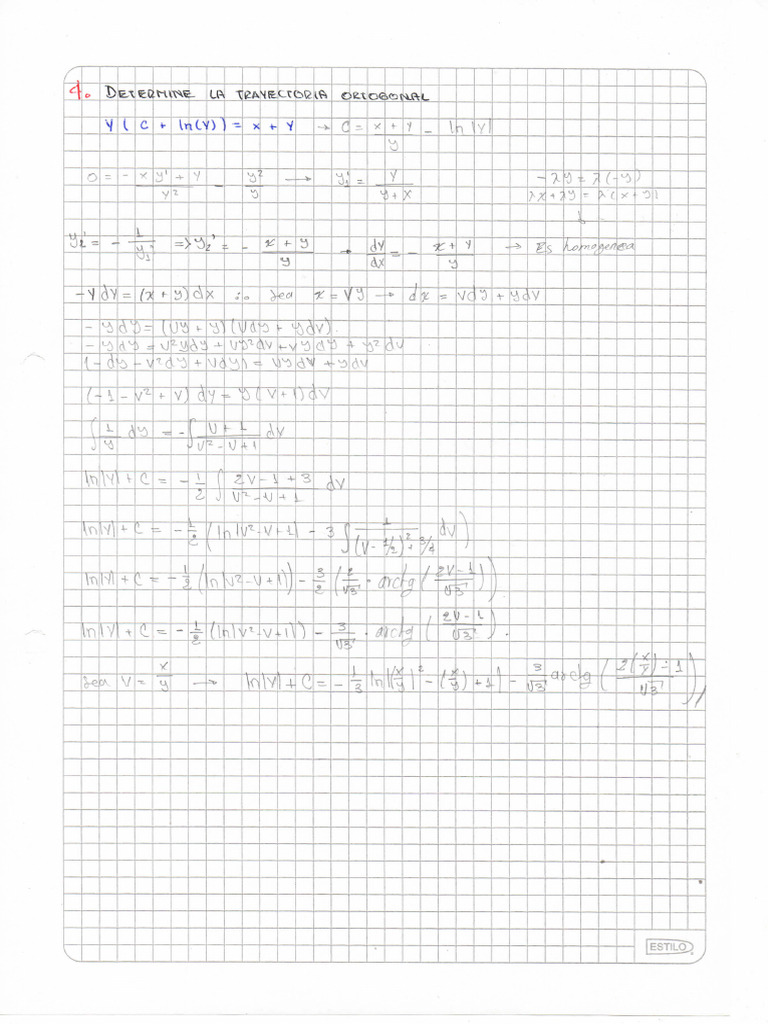 4. DETERMINE LA TRAYECTORIA ORTOGONAL
Y ( C + ln(Y) ) = x + Y → C = (x + Y)/y - ln |Y|
0 = - (x y' + Y)/Y² - y²/y → y₁' = Y/(y + x)
-λy = λ(-y)
λx + λy = λ(x + y)
y₂' = - 1/y₁' => y₂' = - (x + y)/y → dY/dx = - (x + Y)/y → Es homogenea
-Y dY = (x + y) dx ∴ sea x = Vy → dx = Vdy + ydV
- y dy = (Vy + y) (Vdy + ydv).
- y dy = V²ydy + Vy²dv + vydy + y²dv
(-dy - V²dy + Vdy) = Vy dv + ydv
(-1 - V² + V) dy = y (V+1) dV
∫ 1/y dy = -∫ (V+1)/(V² - V + 1) dV
ln|Y| + C = - 1/2 ∫ (2V - 1 + 3)/(V² - V + 1) dV
ln|Y| + C = - 1/2 (ln|V² - V + 1| - 3 ∫ 1/((V - 1/2)² + 3/4) dV)
ln|Y| + C = - 1/2 (ln|V² - V + 1|) - 3/2 (2/√3 · arctg ((2V - 1)/√3))
ln|Y| + C = - 1/2 (ln|V² - V + 1|) - 3/√3 · arctg ((2V - 1)/√3).
sea V = x/y → ln|Y| + C = - 1/3 ln|(x/y)² - (x/y) + 1| - 3/√3 arctg ((2(x/y) - 1)/√3)
ESTILO